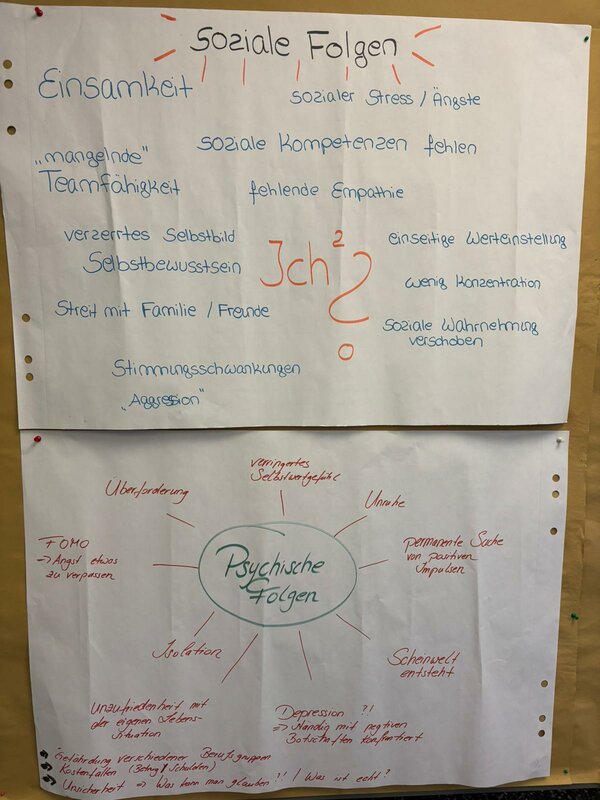 Soziale Folgen
Einsamkeit
sozialer Stress / Ängste
soziale Kompetenzen fehlen
„mangelnde"
Teamfähigkeit
fehlende Empathie
verzerrtes Selbstbild
Selbstbewusstsein
Ich²?
einseitige Werteinstellung
wenig Konzentration
Streit mit Familie / Freunde
soziale Wahrnehmung
verschoben
Stimmungsschwankungen
„Aggression"
Psychische
Folgen
verringertes
Selbstwertgefühl
Überforderung
Unruhe
FOMO
⇒ Angst etwas
zu verpassen
permanente Suche
von positiven
Impulsen
Isolation
Scheinwelt
entsteht
Unzufriedenheit mit
der eigenen Lebens-
situation
Depression ?!
⇒ Ständig mit negtiven
Botschaften konfrontiert
Gefährdung verschiedener Berufsgruppen
Kostenfallen (Betrug / Schulden)
Unsicherheit ⇒ Was kann man glauben?! / Was ist echt?